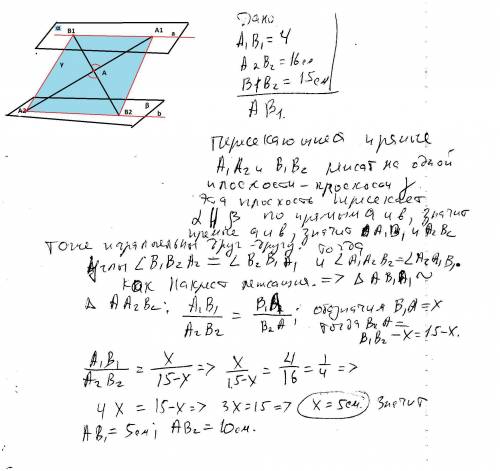 α B1 A1 a
γ A
A2 B2 β b
Дано
A₁B₁ = 4
A₂B₂ = 16см
B₁B₂ = 15см
AB₁.
Пересекающией прямые
A₁A₂ и B₁B₂ лежат на одной
плоскости - плоскости γ
Эта плоскость пересекает
α || β по прямым a и b, значит
прямые a и b, значит A₁B₁ и A₂B₂
тоже параллельны друг другу. Тогда
углы ∠B₁B₂A₂ = ∠B₂B₁A₁ и ∠A₁A₂B₂ = ∠A₂A₁B₁.
как накрест лежащия. => Δ AB₁A₁ ~
Δ AA₂B₂; A₁B₁/A₂B₂ = B₁A/B₂A; обозначия B₁A = x
тогда B₂A =
B₁B₂ - x = 15-x.
A₁B₁/A₂B₂ = x/15-x => x/15-x = 4/16 = 1/4 =>
4x = 15-x => 3x = 15 => x = 5см. Значит
AB₁ = 5см; AB₂ = 10см.